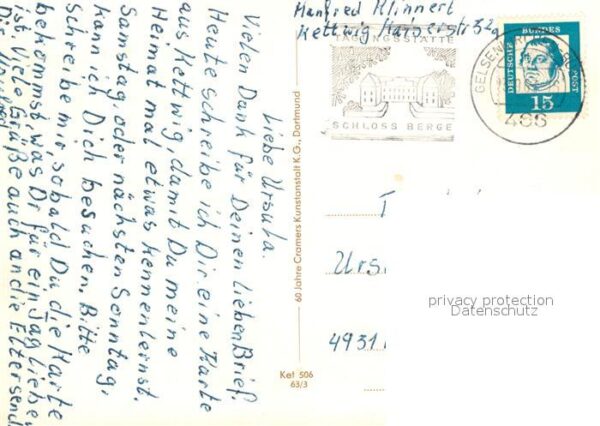 Manfred Klinnert
Kettwig Kaiserstr 32a
SCHLOSS BERGE
GELSEN
DEUTSCHE BUNDESPOST
15
Liebe Ursula.
Vielen Dank für Deinen lieben Brief.
Heute schreibe ich Dir eine Karte
aus Kettwig, damit Du meine
Heimat mal etwas kennenlernst.
Samstag, oder nächsten Sonntag,
kann ich Dich besuchen. Bitte
schreibe mir, sobald Du die Karte
bekommst, was Dir für ein Tag lieber
ist. Viele Grüße auch an die Eltern
60 Jahre Cramers Kunstanstalt K.G., Dortmund
Ket 506
63/3
Urs
4931
privacy protection
Datenschutz